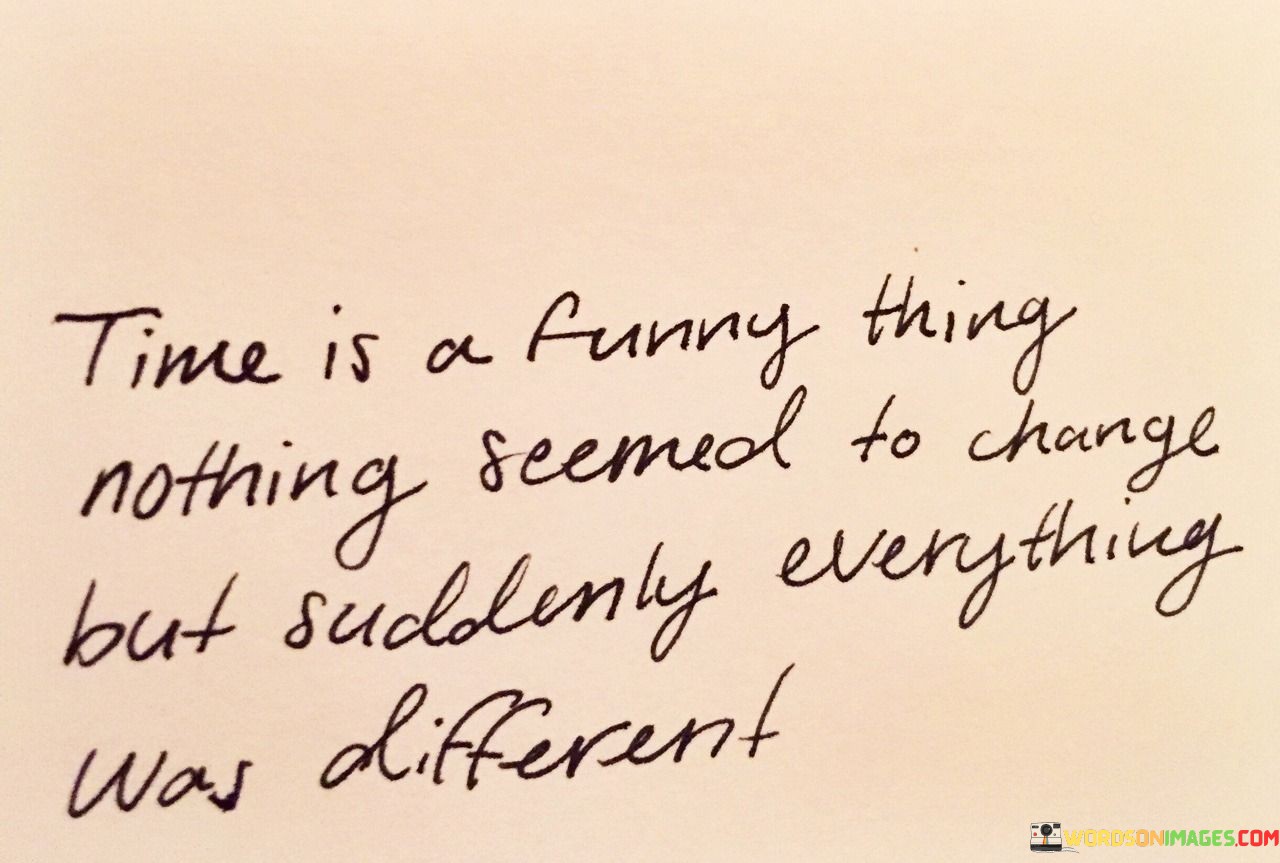 Time is a funny thing
nothing seemed to change
but suddenly everything
was different
WORDSONIMAGES.COM